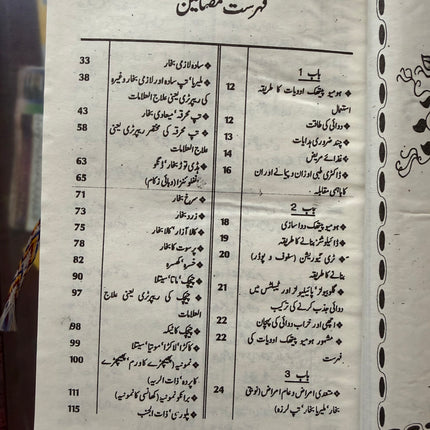 فہرست مضامین
باب 1
ہومیوپیتھک ادویات کا طریقہ 12
استعمال
دوائی کی طاقت 12
چند ضروری ہدایات 13
غذائے مریض 14
ڈاکٹری طبی اوزان و پیمانے اور ان 16
کا باہمی مقابلہ
باب 2
ہومیوپیتھک دواسازی 18
ڈائیلیوشنز بنانے کا طریقہ 19
ٹری ٹیوریشن (سفوف و پوڈر) 20
بنانے کا طریقہ
گلوبیولز، پائیلیولز اور ٹیبلٹس میں 21
دوائی جذب کرنے کی ترکیب
اچھی اور خراب دوائی کی پہچان 22
مشہور ہومیوپیتھک ادویات کی 22
فہرست
باب 3
متعدی امراض و عام امراض (نوبتی 24
بخار، ملیریا بخار، تپ لرزہ)
سادہ لازمی بخار 33
ملیریا، تپ اور لازمی بخار وغیرہ 38
کی ریپرٹری یعنی علاج العلامات
تپ محرقہ، میعادی بخار 43
تپ محرقہ کی مختصر ریپرٹری یعنی 58
علاج العلامات
ہڈی توڑ بخار، ڈنگو 63
انفلوئنزا (وبائی زکام) 65
سرخ بخار 71
زرد بخار 73
کالا آزار، کالا بخار 75
پرسوت کا بخار 78
خسرہ، کھسرہ 82
چیچک، ماتا، سیتلا 90
چیچک کی ریپرٹری یعنی علاج 97
العلامات
چیچک کا ٹیکہ 98
کاکڑا لاکڑا، موتیا، سیتلا 99
نمونیہ (پھیپھڑے کا ورم، پھیپھڑے 100
کا پردہ، ذات الریہ)
برانکو نمونیہ (کھانسی کا نمونیہ) 111
پلورسی، ذات الجنب 115